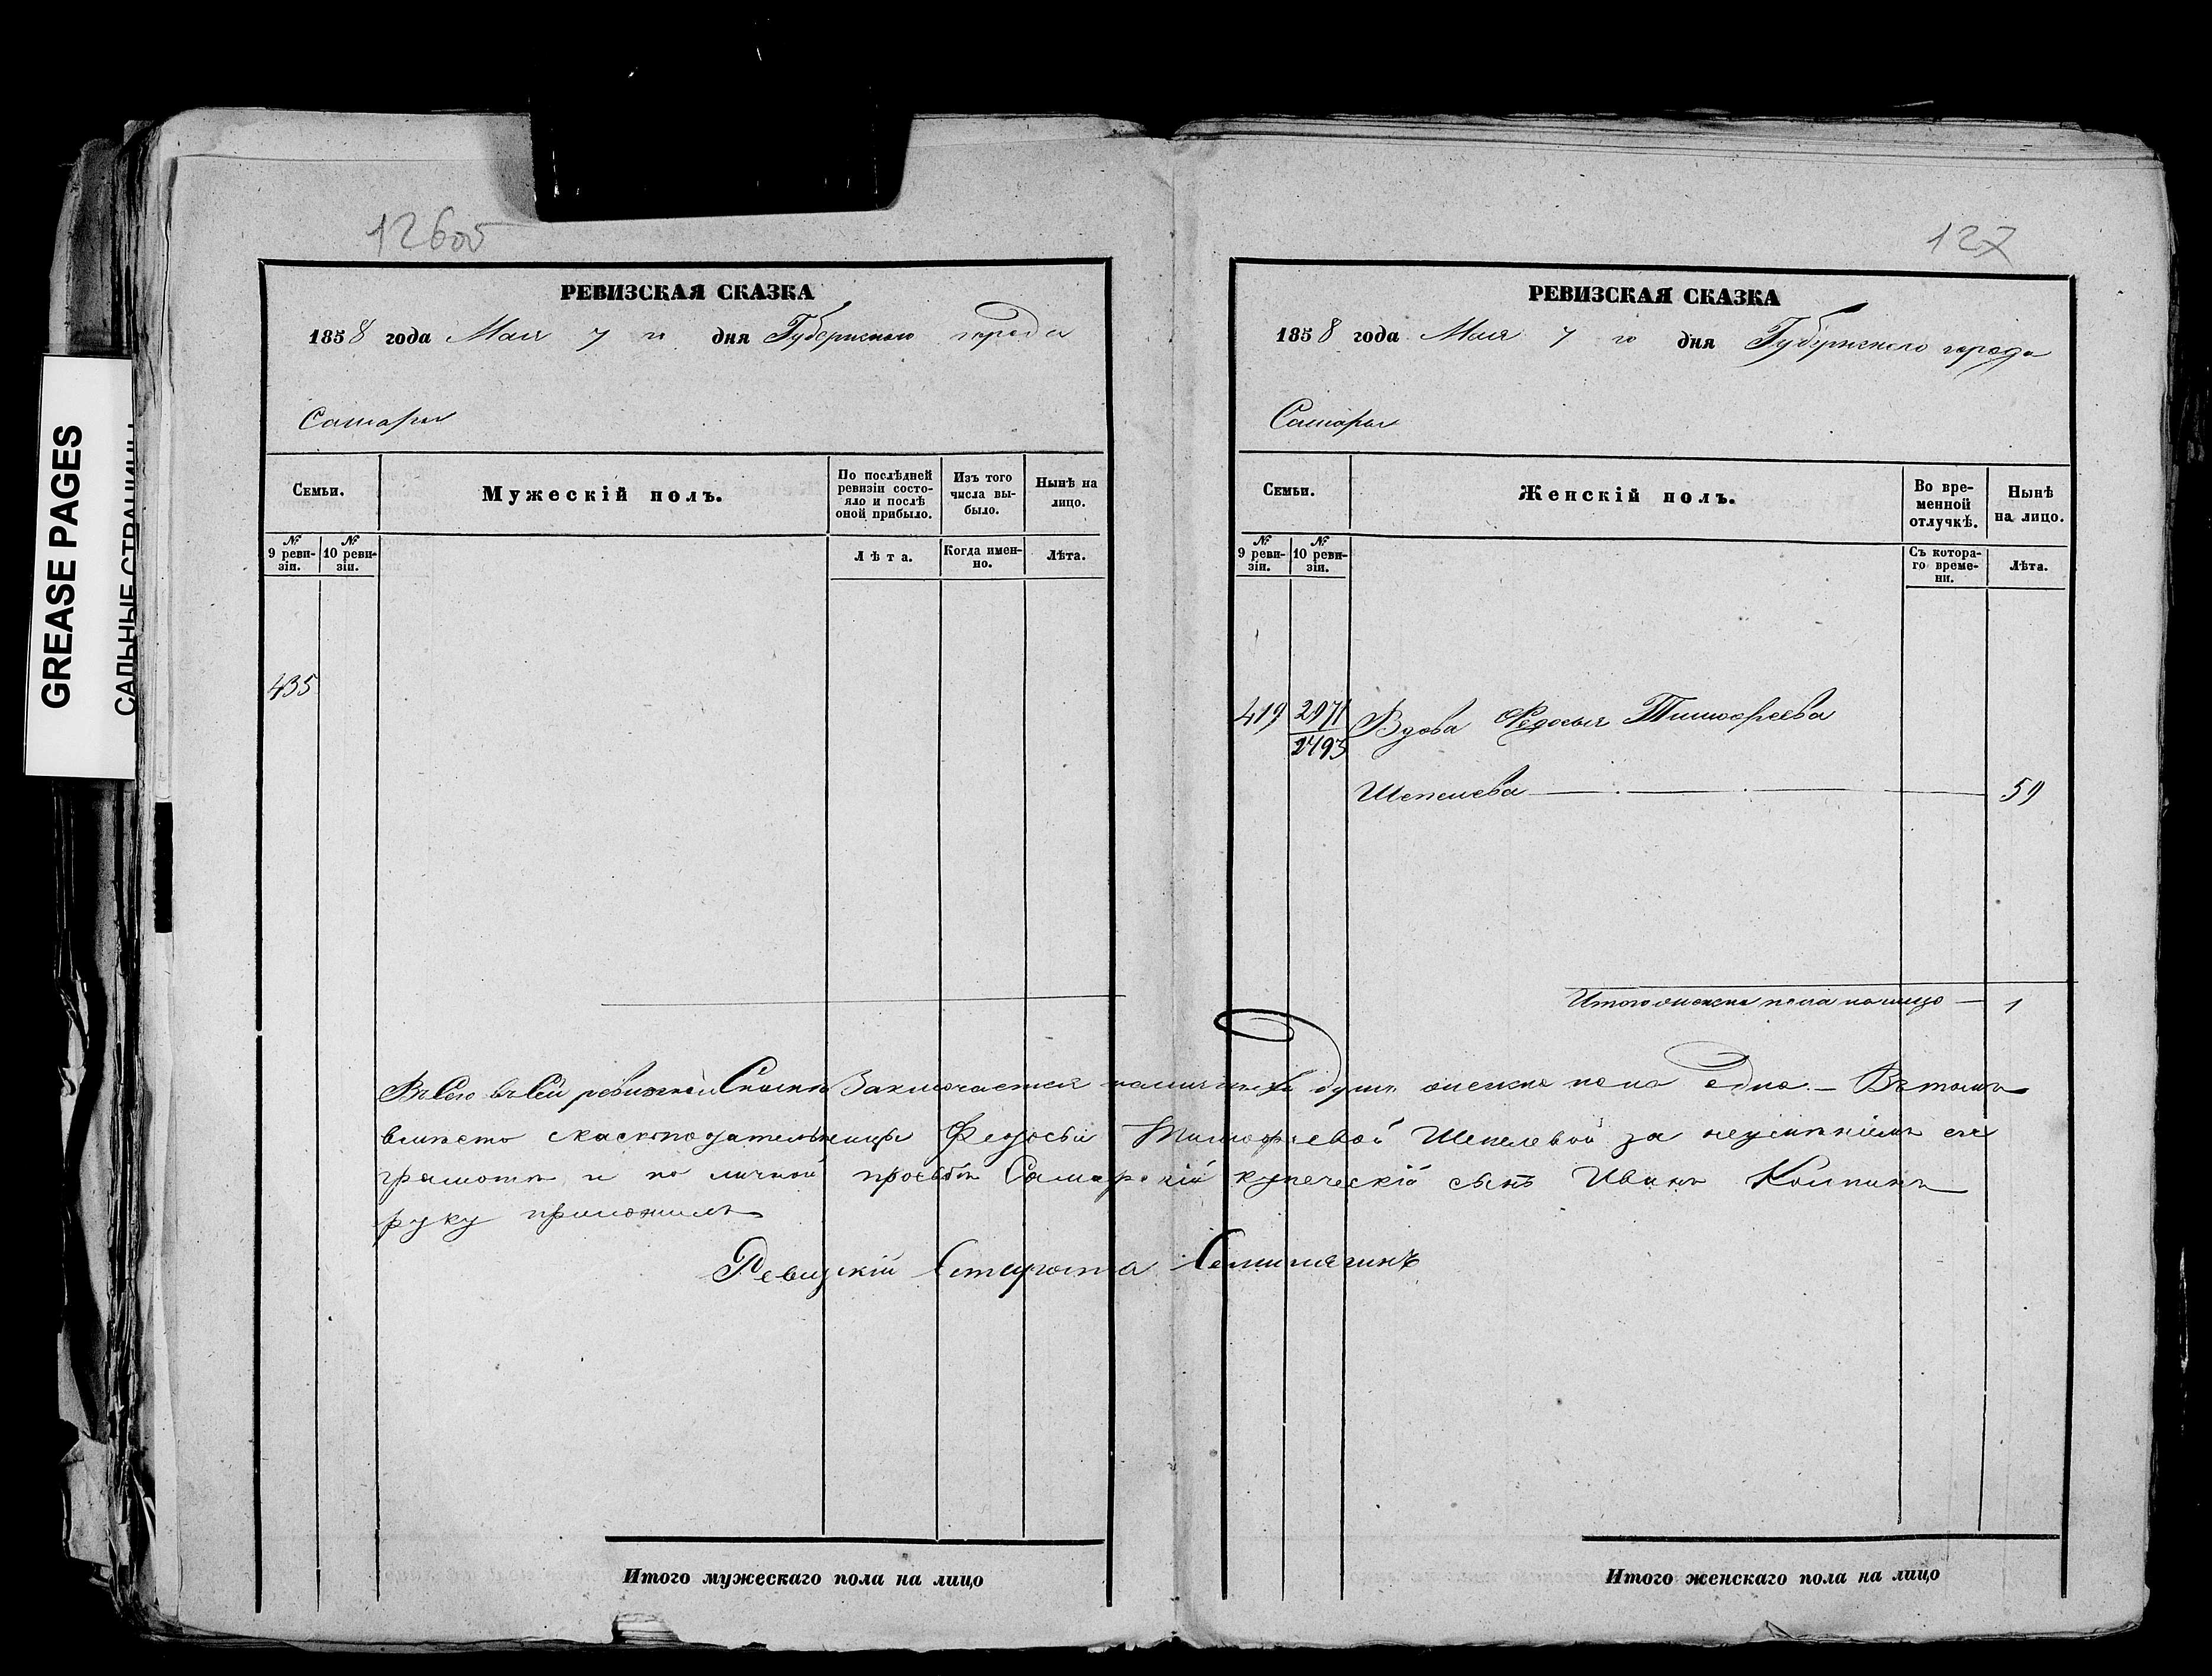 GREASE PAGES
САЛЬНЫЕ СТРАНИЦЫ
126об
РЕВИЗСКАЯ СКАЗКА
1858 года Мая 7 го дня Губернского города
Самары
Семьи.
Мужескій полъ.
По послѣдней ревизіи состо-
яло и послѣ оной прибыло.
Изъ того числа вы-
было.
Нынѣ на лицо.
№ 9 реви-
зіи.
№ 10 реви-
зіи.
Лѣта.
Когда имен-
но.
Лѣта.
435
127
РЕВИЗСКАЯ СКАЗКА
1858 года Мая 7 го дня Губернского города
Самары
Семьи.
Женскій полъ.
Во вре-
менной
отлучкѣ.
Нынѣ
на лицо.
№ 9 реви-
зіи.
№ 10 реви-
зіи.
Съ котора-
го време-
ни.
Лѣта.
419 2971 Вдова Федосья Тимофеева
2493
Шепелева 59
Итого женска пола на лицо — 1
въ сей ревизской Сказкѣ Заключается душъ женска пола одна. — Въ томъ
вместо сказкоподательницы Федосьи Тимофеевой Шепелевой за неумѣніемъ ея
грамотѣ и по личной просьбѣ Самарскій купеческій сынъ Иванъ
руку приложилъ
Ревизскій Староста
Итого мужескаго пола на лицо
Итого женскаго пола на лицо